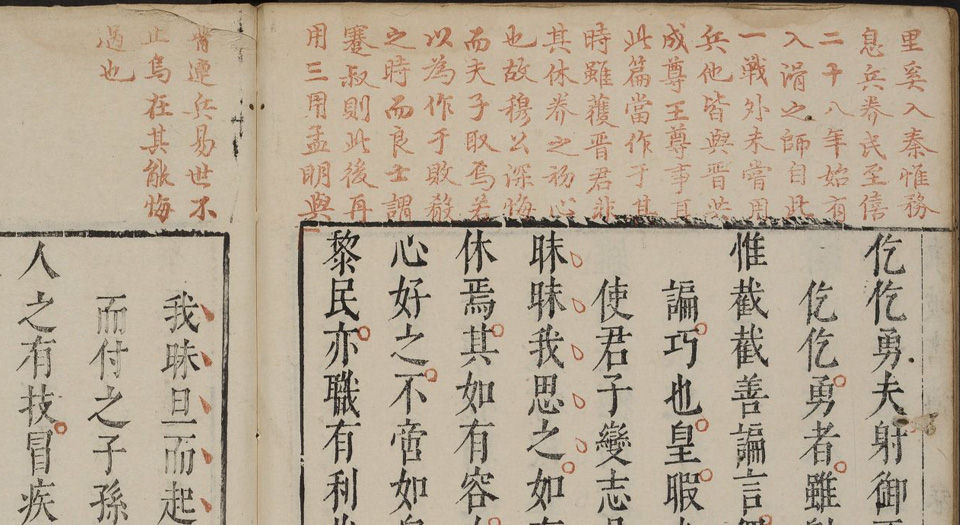 里奚入秦惟務
息兵养民至僖
二十八年始有
入滑之師自此
一戰外未嘗用
兵他皆與晋共
成尊王尊事耳
此篇當作于其
時雖獲晋君非
其休养之初心
也故穆公深悔
而夫子取焉若
以為作于敗殽
之時而良士謂
蹇叔則此後再
用三用孟明與
仡仡勇夫射御
仡仡勇者雖
惟截截善諞言
諞巧也皇暇
使君子變志
昧昧我思之如
休焉其如有容
心好之不啻如
黎民亦職有利
晋連兵易世不
止烏在其能悔
過也
我昧旦而起
而付之子孫
人之有技冒疾